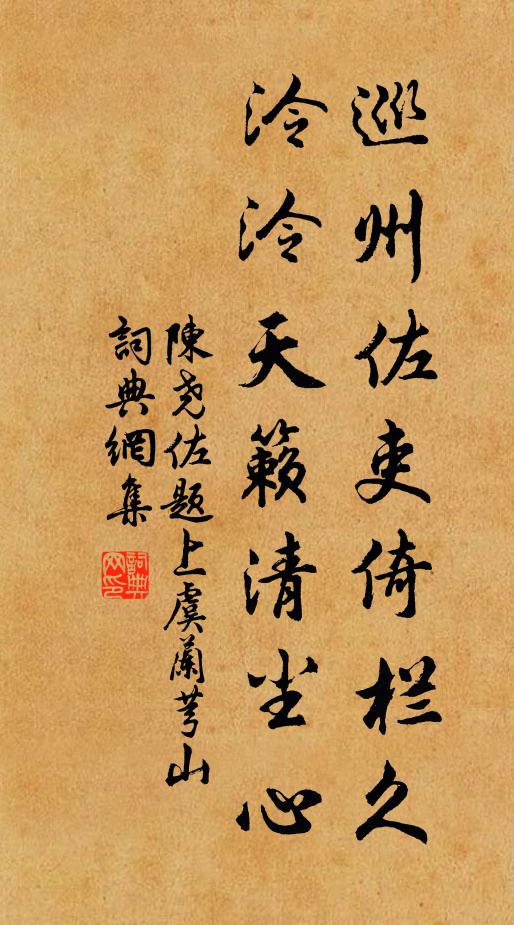 巡州佐吏倚栏久
泠泠天籁清尘心
陳尧佐题上虞蘭芎山
詞典網集
詞典网印